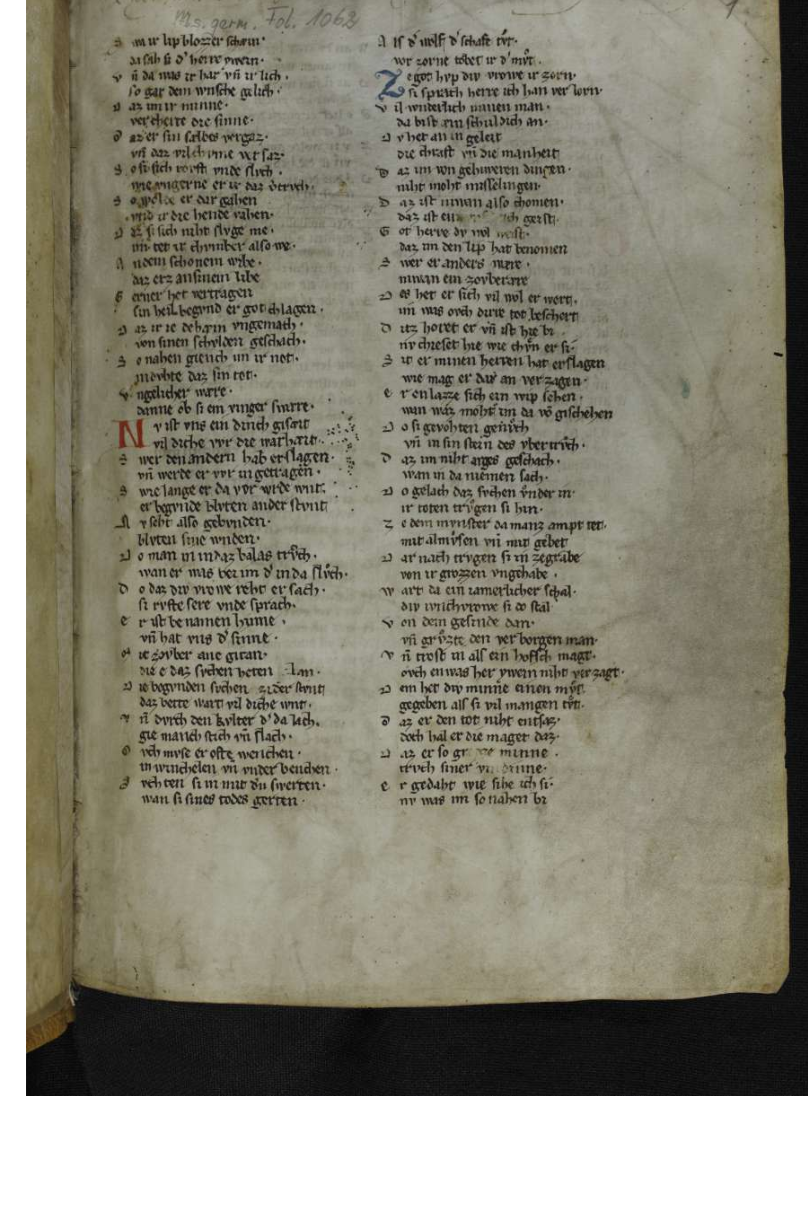 Ms. germ. Fol. 1062
1
S wa ir lip blozzer schein·
da sah si d' herre ywein·
v n̄ da was ir har vn̄ ir lich·
so gar dem wnsche gelich·
D az im ir minne·
ver cherte die sinne·
D az er sin selbes vergaz·
vn̄ daz vil chvme
S o si sich rovft vnde slvch·
wie vngerne er ir daz vertrvch·
S o wolde er dar gahen
vnd ir die hende vahen·
D az si sich niht slvge me·
im tet ir chvmber also we·
A n dem schonem wibe·
daz erz an sinem libe
G erner het vertragen
sin heil begvnd er got chlagen·
D az ir ie dehæin vngemach·
von sinen schvlden geschach·
S o nahen giench im ir not·
in dvhte daz sin tot·
V ngelicher wære·
danne ob si ein vinger swære·
N v ist vns ein dinch giseit
vil diche vvr die warheit·
S wer den andern hab erslagen·
vn̄ werde er vvr in getragen·
S wie lange er da vor wrde wnt·
er begvnde blvten ander stvnt
N v seht also gebvnden·
blvten sine wnden·
D o man in in daz balas trv̊ch·
wan er was bei im d' in da slv̊ch·
D o daz div vrowe reht er sach·
si rvfte sere vnde sprach·
E r ist benamen hinne·
vn̄ hat vns d' sinne·
M it zovber ane gitan·
die e daz svchen heten lan·
D ie begvnden svchen ander stvnt
daz bette wart vil diche wnt·
V n̄ dvrch den kvlter d' da lach·
gie manich stich vn̄ slach·
O vch mvse er ofte wenchen·
in winchelen vn̄ vnder benchen·
S vchten si in mit dn̄ swerten·
wan si sines todes gerten·
A ls d' wolf d' schafe tvt·
vor zorne tobet ir d' mv̊t·
Z e got hvp div vrowe ir zorn·
si sprach herre ich han ver lorn·
V il wnderlich minen man·
da bist ein schvldich an·
D v het an in geleit
die chraft vn̄ die manheit
D az im von gehiweren dingen·
niht moht misselingen·
D az ist niwan also chomen·
daz ist ein ich geist·
G ot herre dv wol weist·
daz im den lip hat benomen
S wer er anders were·
niwan ein zovberære
D es het er sich vil wol er wert·
im was ovch dirre tot beschert
D itz horet er vn̄ ist hie bi
nv chieset hie wie chv̊n er si·
S it er minen herren hat erslagen
wie mag er dar an ver zagen·
E r en lazze sich ein wip sehen·
wan waz moht im da vo gischehen
D o si gevohten genv̊ch
vn̄ in sin stein des vber trv̊ch·
D az im niht arges geschach·
wan in da niemen sach·
D o gelach daz svchen v̊nder in·
ir toten trv̊gen si hin·
Z e dem mvnster da manz ampt tet·
mit almv̊sen vn̄ mit gebet
D ar nach trvgen si in zegrabe
von ir grozzen vngehabe·
W art da ein iamerlicher schal·
div ivnchvrowe si do stal
V on dem gesinde dan·
vn̄ grv̊zte den ver borgen man·
V n̄ trost in als ein hofsch magt·
ovch en was her ywein niht ver zagt·
D em het div minne einen mv̊t·
gegeben als si vil mangen tv̊t·
D az er den tot niht entsaz·
doch hal er die maget daz·
D az er so gr minne·
trvch siner vi inne·
E r gedaht wie sihe ich si·
nv was im so nahen bi